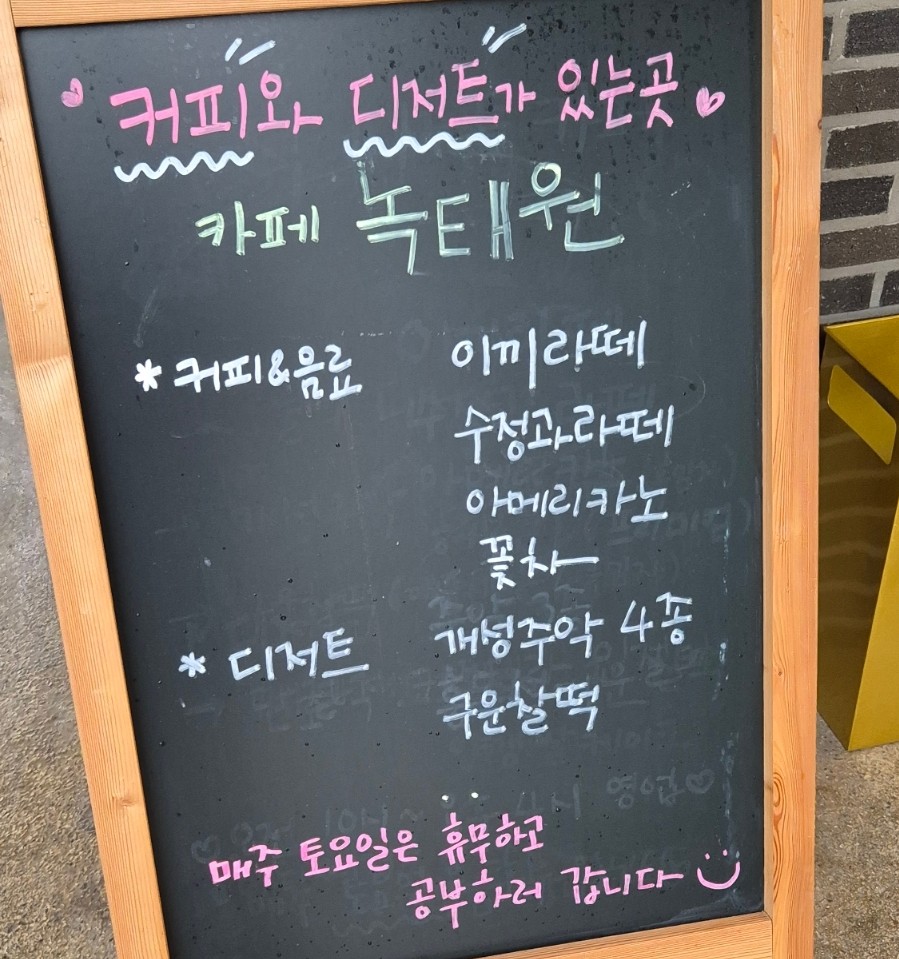 커피와 디저트가 있는곳
카페 녹태원
* 커피&음료 이끼라떼
수정과라떼
아메리카노
꽃차
* 디저트 개성주악 4종
구운찰떡
매주 토요일은 휴무하고
공부하러 갑니다